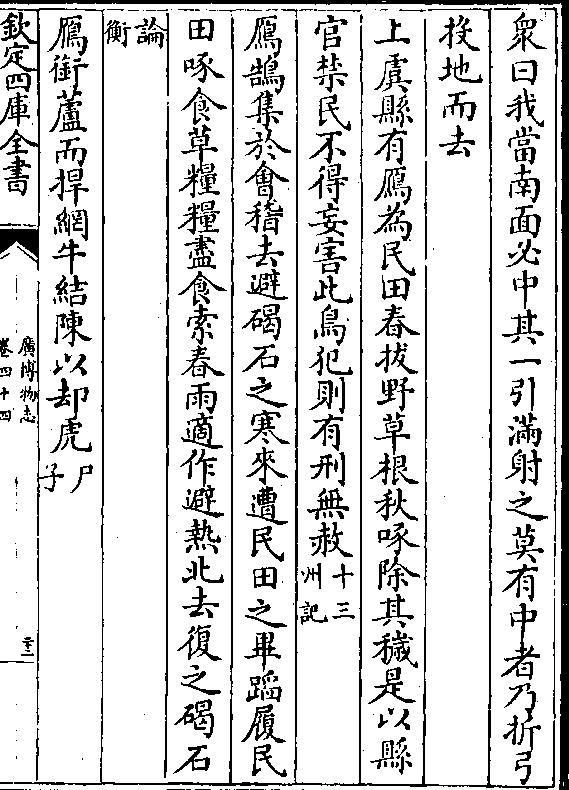 衆曰我當南面必中其一引滿射之莫有中者乃折弓
投地而去
上虞縣有鴈為民田春拔野草根秋啄除其穢是以縣
官禁民不得妄害此鳥犯則有刑無赦十三
州記
鴈鵠集於會稽去避碣石之寒來遭民田之畢蹈履民
田啄食草糧糧盡食索春雨適作避熱北去復之碣石
論
衡
鴈銜蘆而捍網牛結陳以却虎尸
子
欽定四庫全書
廣博物志
卷四十四